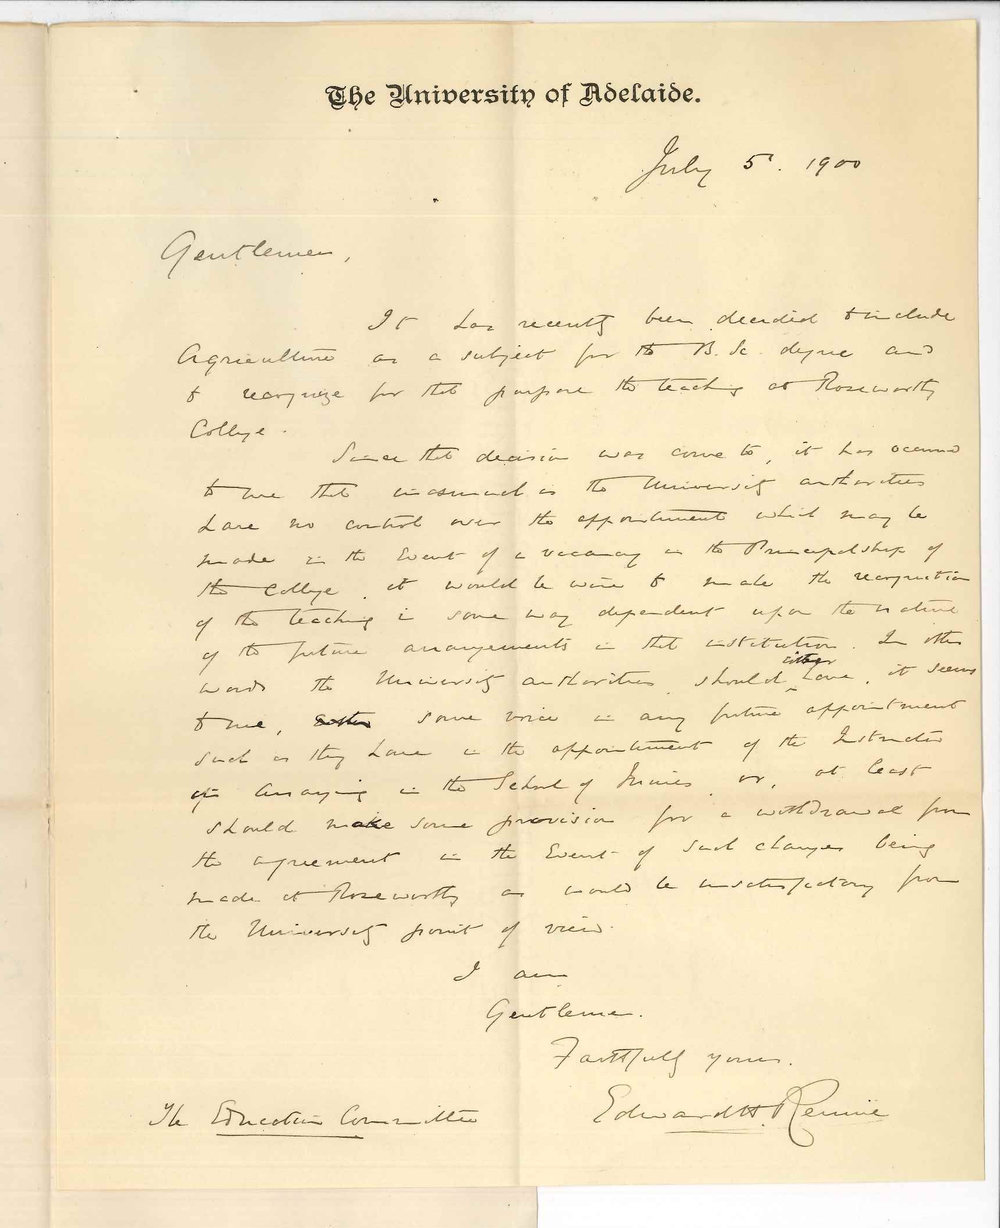 The University of Adelaide.
July 5. 1900
Gentlemen,
It has recently been decided to include
Agriculture as a subject for the B. Sc. degree and
to recognize for that purpose the teaching at Roseworthy
College.
Since that decision was come to, it has occurred
to me that inasmuch as the University authorities
have no control over the appointment which may be
made in the Event of a vacancy in the Principalship of
the College, it would be wise to make the recognition
of the teaching in some way dependent upon the nature
of the future arrangements in that institution. In other
words the University authorities should either have, it seems
to me, some voice in any future appointment
such as they have in the appointment of the Instructor
in Assaying in the School of Mines, or, at least
should make some provision for a withdrawal from
the agreement in the Event of such changes being
made at Roseworthy as would be unsatisfactory from
the University point of view.
I am
Gentlemen.
Faithfully yours.
Edward H. Rennie
The Education Committee